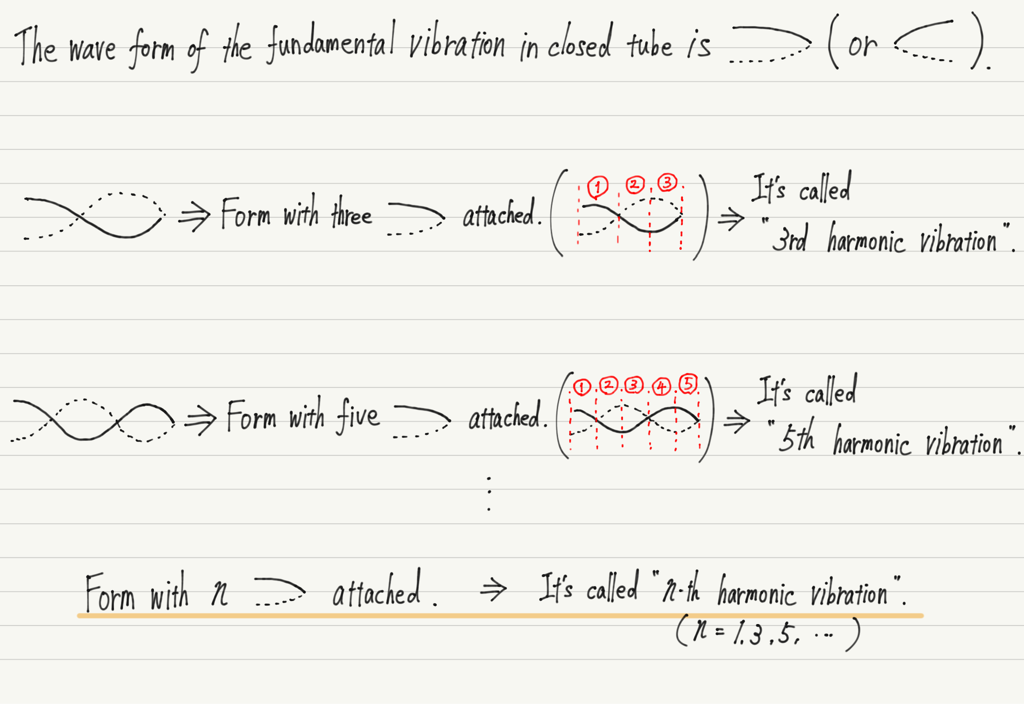 The wave form of the fundamental vibration in closed tube is (or ).
① ② ③
⇒ Form with three attached. ( ) ⇒ It's called
"3rd harmonic vibration".
① ② ③ ④ ⑤
⇒ Form with five attached. ( ) ⇒ It's called
"5th harmonic vibration".
⋮
Form with n attached. ⇒ It's called "n-th harmonic vibration".
(n = 1.3.5. ⋯ )